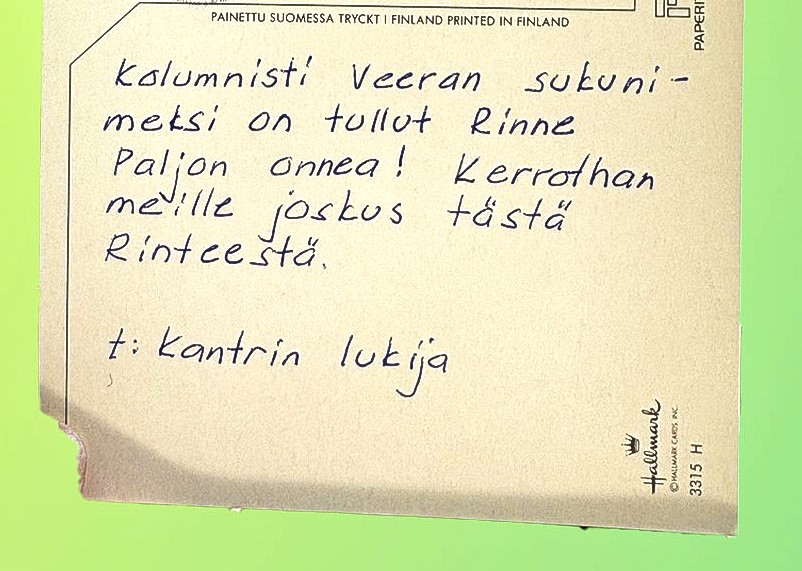 PAINETTU SUOMESSA TRYCKT I FINLAND PRINTED IN FINLAND
Kolumnisti Veeran sukuni-
meksi on tullut Rinne
Paljon onnea! Kerrothan
meille joskus tästä
Rinteestä.
t: Kantrin lukija
Hallmark
© HALLMARK CARDS, INC.
3315 H